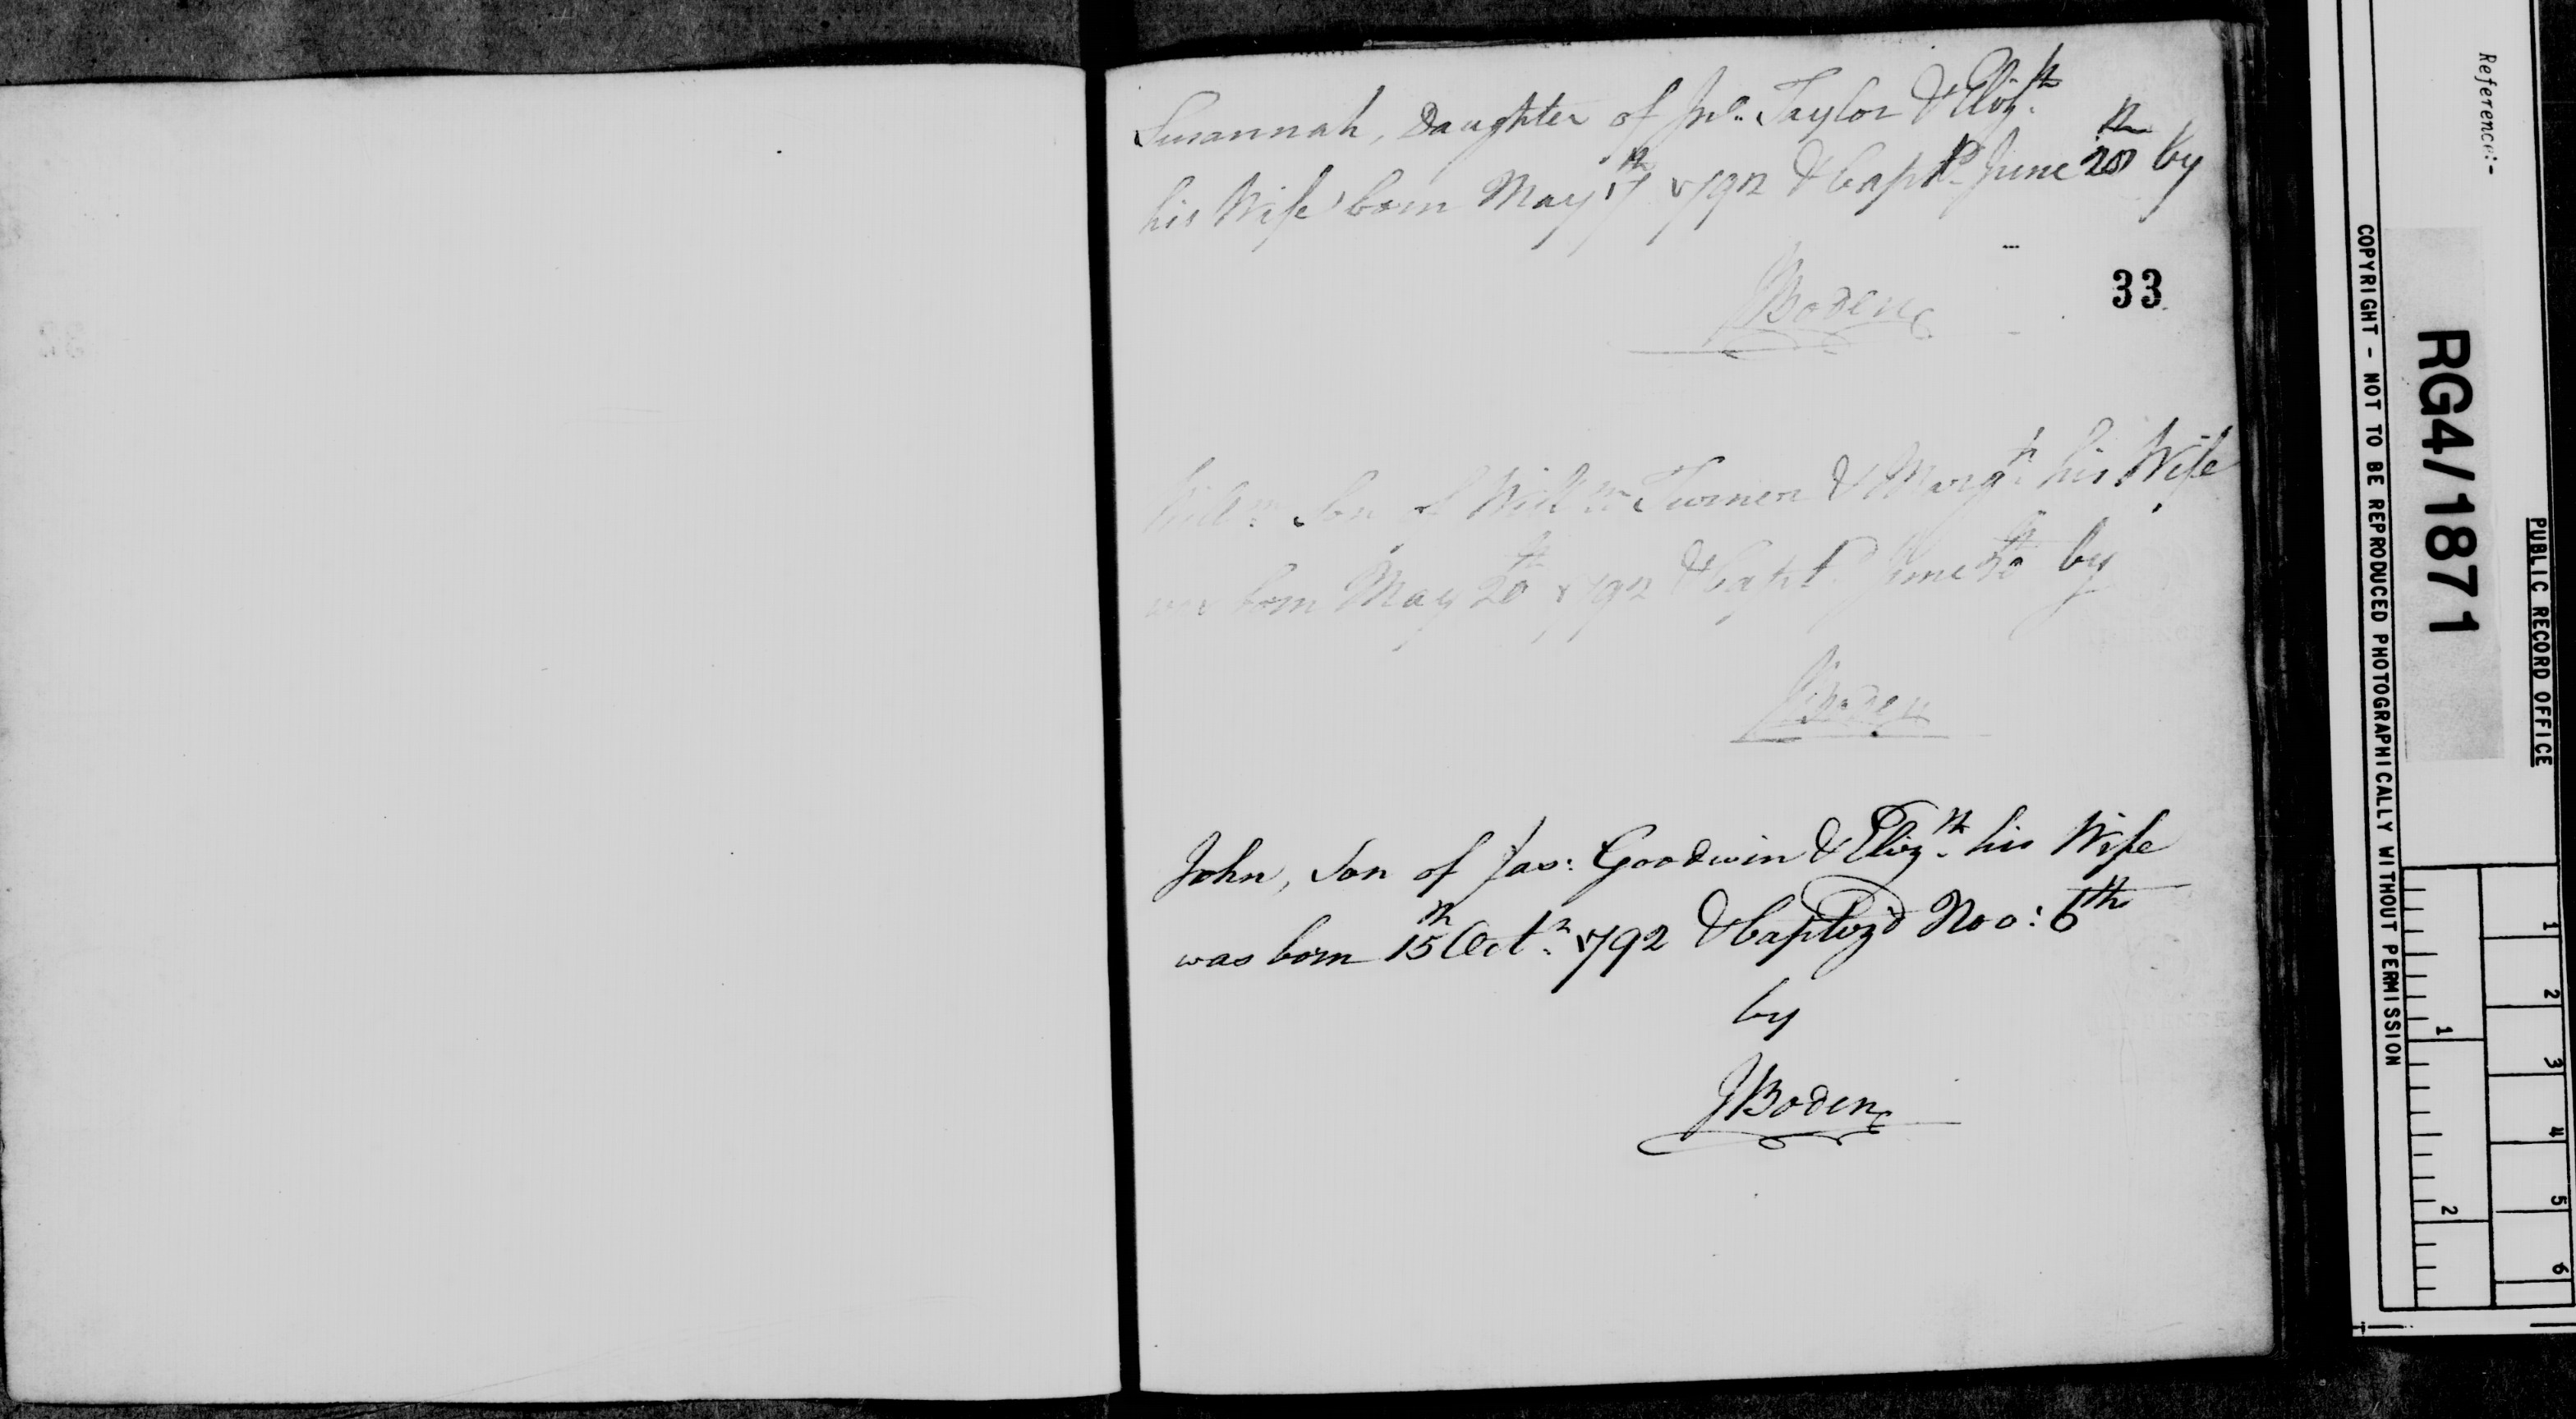 Susannah, Daughter of Jno. Taylor & Elizth
his Wife born May 17th 1792 & bapt'd June 20th by
33
JBoden
Willm Son of Willm Turner & Margt his Wife
was born May 20th 1792 & bapt'd June by
JBoden
John, Son of Jas: Goodwin & Elizth his Wife
was born 15th Octr 1792 & baptiz'd Nov: 6th
by
JBoden
Reference:-
RG4/1871
PUBLIC RECORD OFFICE
COPYRIGHT - NOT TO BE REPRODUCED PHOTOGRAPHICALLY WITHOUT PERMISSION
1 2 3 4 5 6
1 2